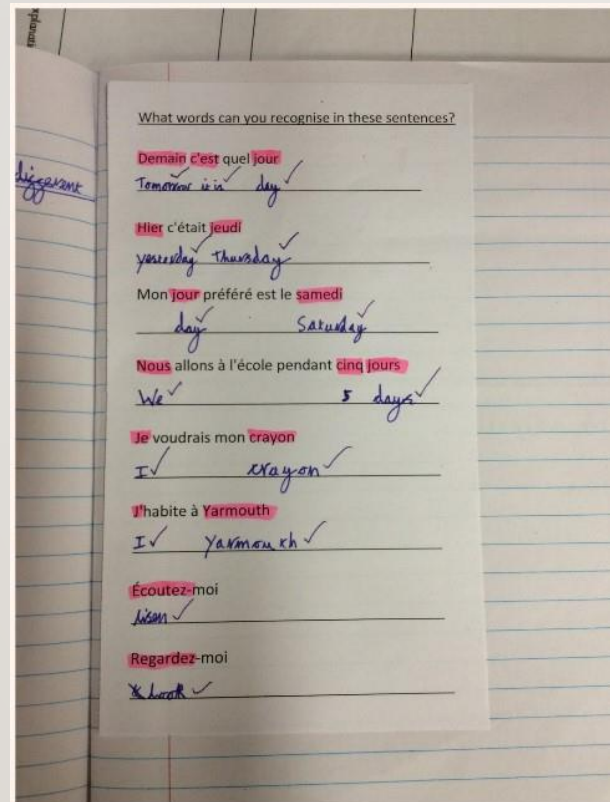 explanati
different
What words can you recognise in these sentences?
Demain c'est quel jour
Tomorrow it is day
Hier c'était jeudi
yesterday Thursday
Mon jour préféré est le samedi
day Saturday
Nous allons à l'école pendant cinq jours
We 5 days
Je voudrais mon crayon
I crayon
J'habite à Yarmouth
I Yarmouth
Écoutez-moi
lisen
Regardez-moi
Look